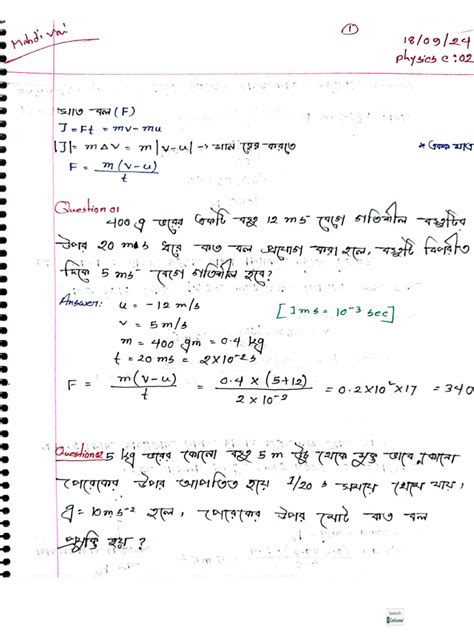 Mahdi Vai
1
18/09/24
physics c:02
ঘাত বল (F)
J = Ft = mv - mu
|J| = m∆v = m|v-u| → মান বের করতে
F = m(v-u)/t
Question 01
400 g ভরের একটি বস্তু 12 ms বেগে গতিশীল বস্তুটির
উপর 20 ms ধরে কত বল প্রয়োগ করা হলে, বস্তুটি বিপরীত
দিকে 5 ms বেগে গতিশীল হবে?
Answer: u = -12 m/s
[1 ms = 10⁻³ sec]
v = 5 m/s
m = 400 gm = 0.4 kg
t = 20 ms = 2×10⁻² s
F = m(v-u)/t = 0.4 × (5+12)/2 × 10⁻² = 0.2×10²×17 = 340
Question 02 5 kg ভরের কোনো বস্তু 5 m উঁচু থেকে মুক্ত ভাবে
পেরেকের উপর আপতিত হয়ে 1/20 s সময়ে থেমে যায়,
g = 10 ms⁻² হলে, পেরেকের উপর মোট কত বল
প্রযুক্ত হয়?
Scanned with
CamScanner